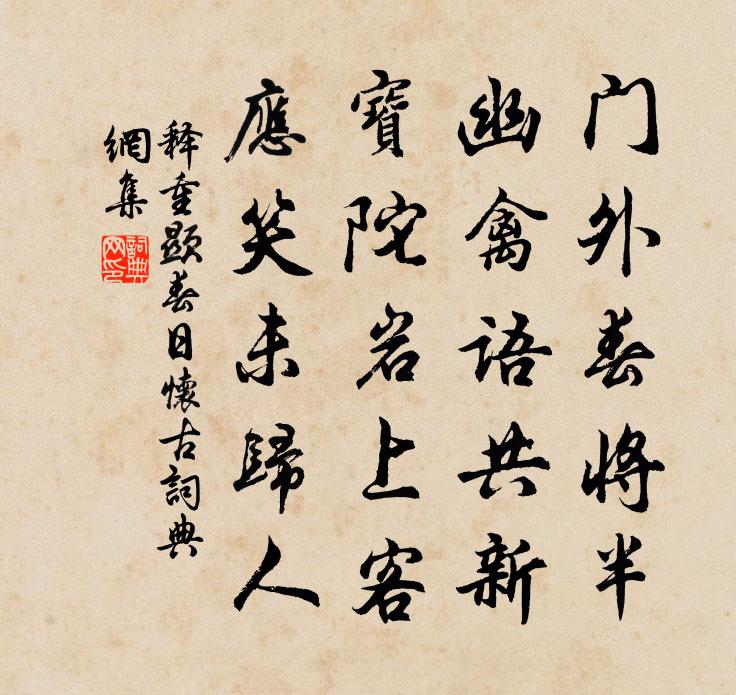 门外春将半
幽禽語共新
寶陀岩上客
應笑未歸人
释重顯春日懷古詞典
網集
詞典網印